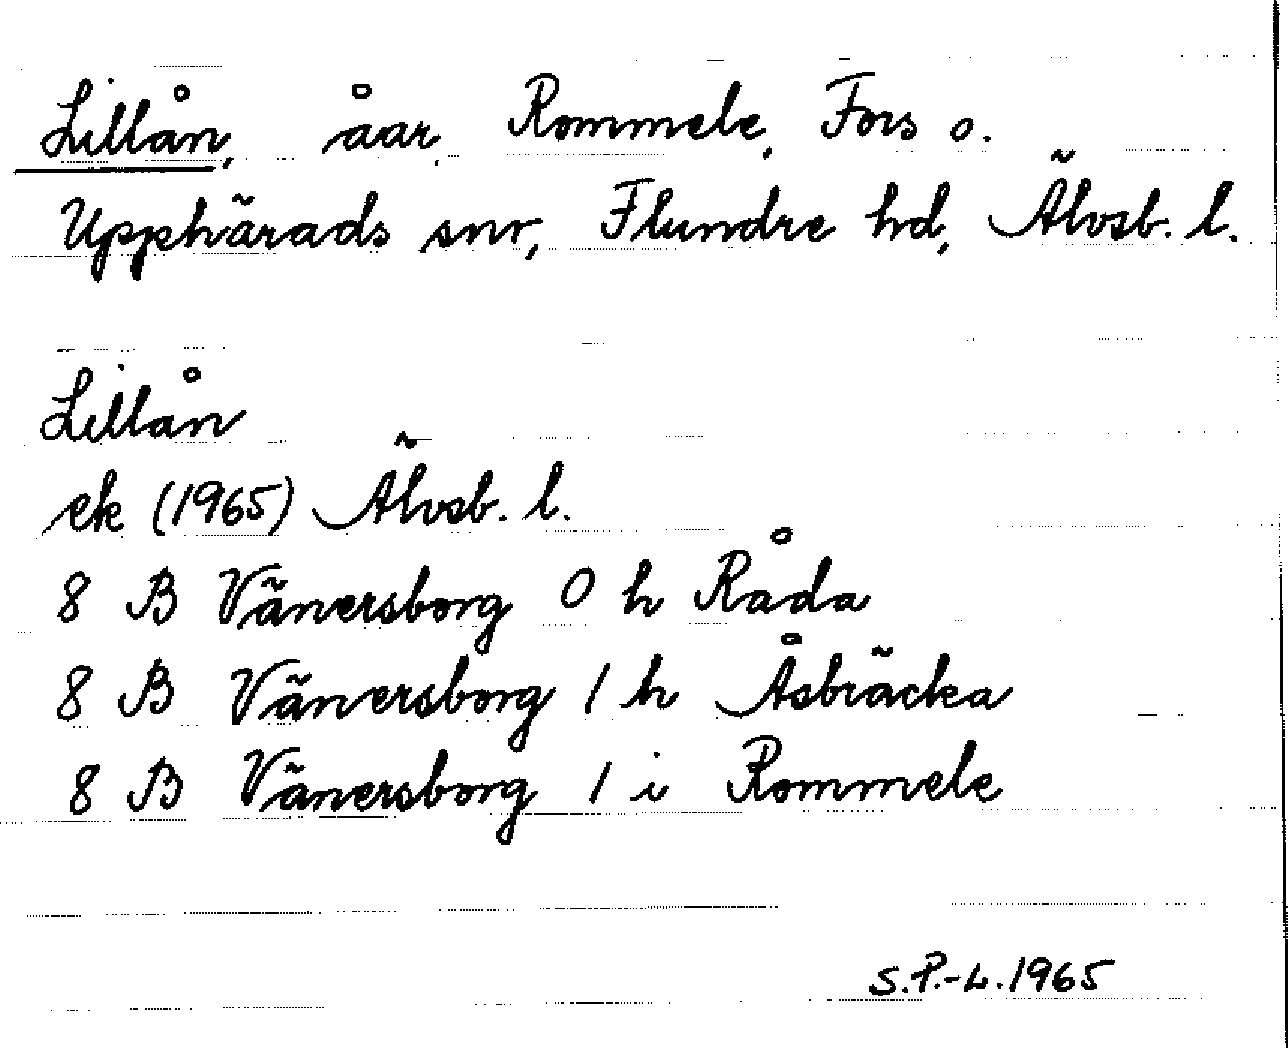 Lillån, åar, Rommele, Fors o.
Upphärads snr, Flundre hd, Älvsb. l.
Lillån
ek (1965) Älvsb. l.
8 B Vänersborg 0 h Råda
8 B Vänersborg 1 h Åsbräcka
8 B Vänersborg 1 i Rommele
S.P.-L. 1965